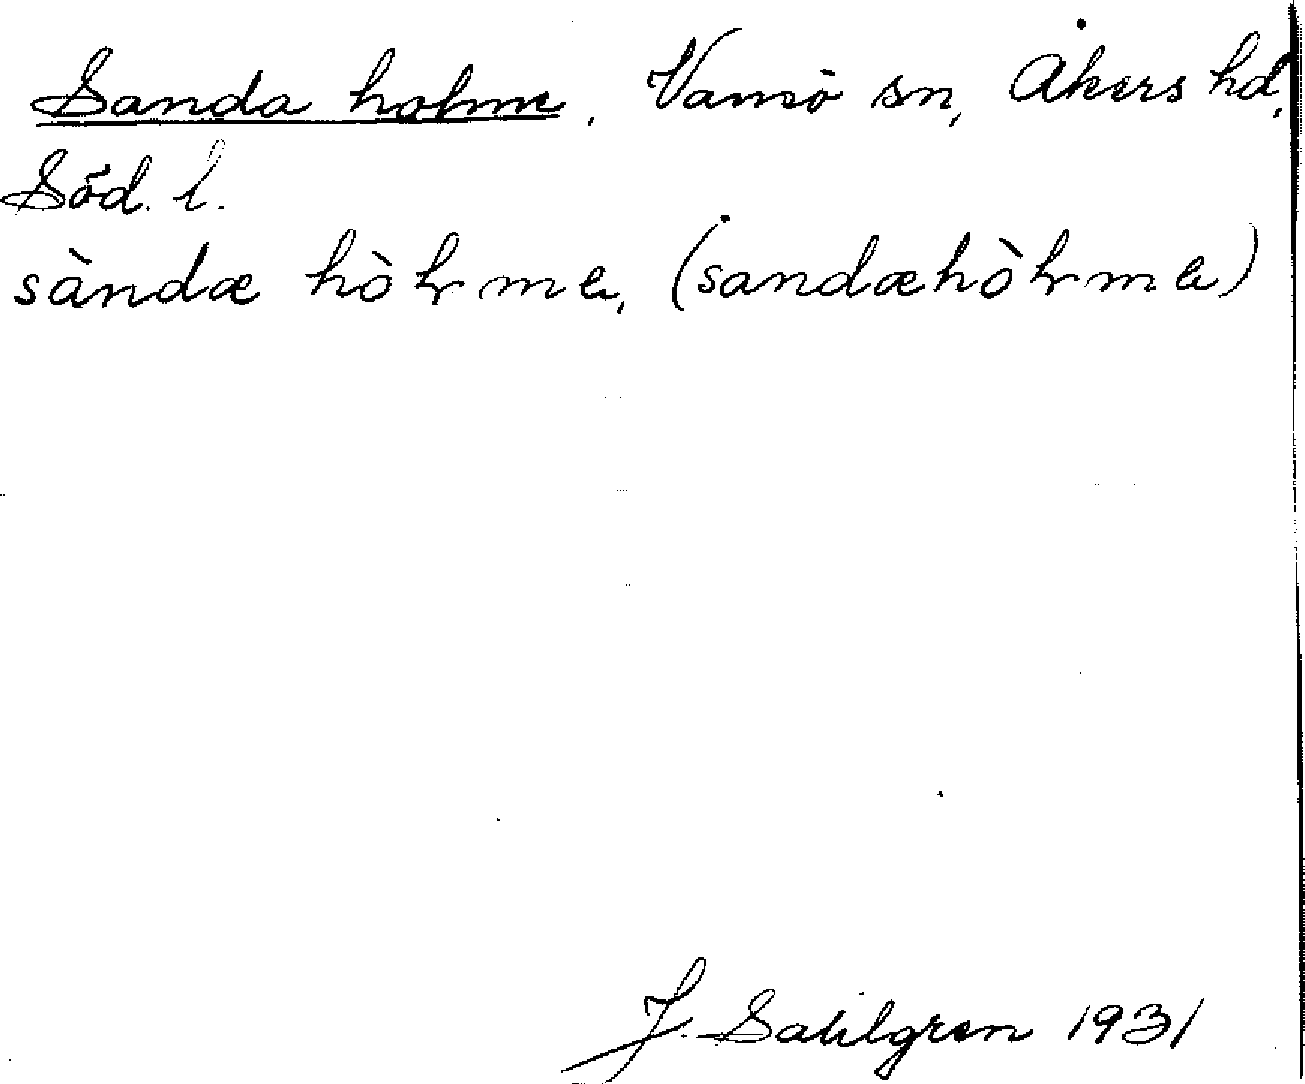 Sanda holme, Vansö sn, Åkers hd,
Söd. l.
sàndæ hòꞎmɛ, (sandæhòꞎmɛ)
J. Sahlgren 1931